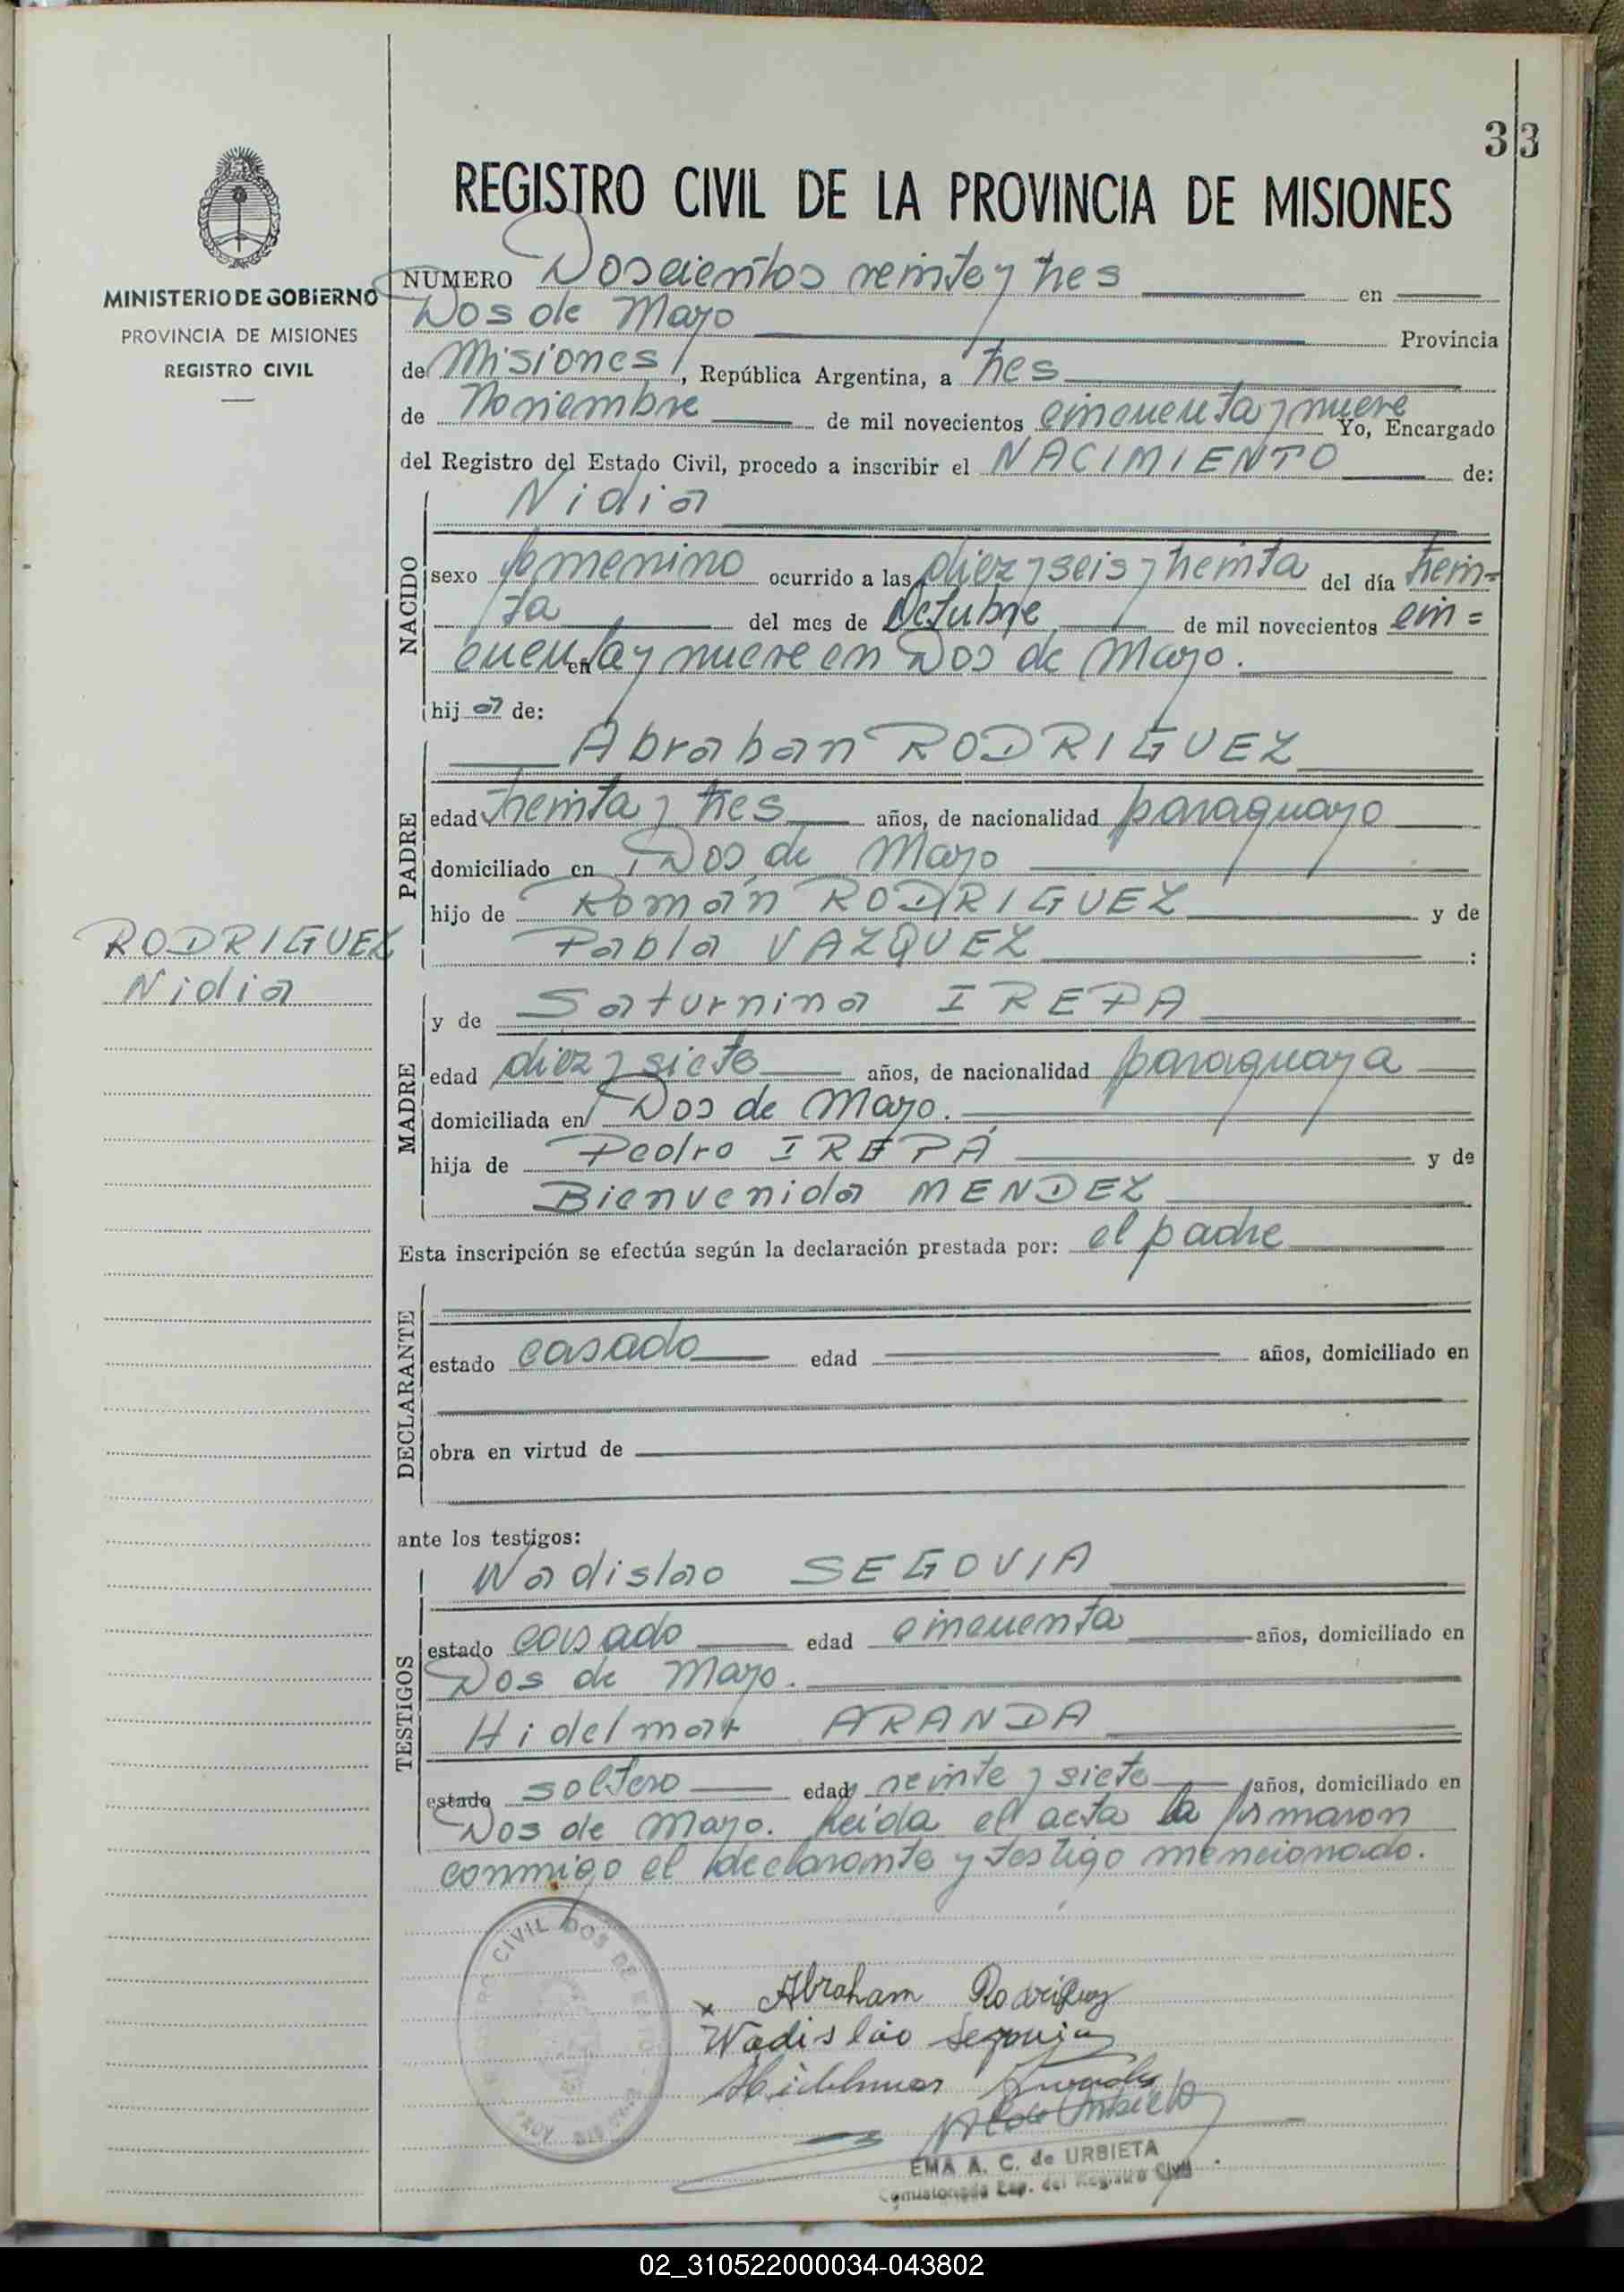 33
REGISTRO CIVIL DE LA PROVINCIA DE MISIONES
MINISTERIO DE GOBIERNO
PROVINCIA DE MISIONES
REGISTRO CIVIL
NUMERO Doscientos veinte y tres en
Dos de Mayo Provincia
de Misiones, República Argentina, a tres
de Noviembre de mil novecientos cincuenta y nueve Yo, Encargado
del Registro del Estado Civil, procedo a inscribir el NACIMIENTO de:
NACIDO
Nidia
sexo femenino ocurrido a las diez y seis y treinta del día trein=
ta del mes de Octubre de mil novecientos cin=
cuenta y nueve en Dos de Mayo.
en
hij a de:
PADRE
Abrahan RODRIGUEZ
edad treinta y tres años, de nacionalidad paraguayo
domiciliado en Dos de Mayo
hijo de Román RODRIGUEZ y de
Pabla VAZQUEZ :
RODRIGUEZ
Nidia
MADRE
y de Saturnina IREPA
edad diez y siete años, de nacionalidad paraguaya
domiciliada en Dos de Mayo.
hija de Pedro IREPÁ y de
Bienvenida MENDEZ
Esta inscripción se efectúa según la declaración prestada por: el padre
DECLARANTE
estado casado edad años, domiciliado en
obra en virtud de
ante los testigos:
TESTIGOS
Wadislao SEGOVIA
estado casado edad cincuenta años, domiciliado en
Dos de Mayo.
Hidelmar ARANDA
estado soltero edad veinte y siete años, domiciliado en
Dos de Mayo. Leída el acta la firmaron
conmigo el declarante y testigo mencionado.
CIVIL DOS DE MAYO
x Abraham Rodriguez
Wadislao Segovia
EMA A. C. de URBIETA
Comisionada Esp. del Registro Civil
02_310522000034-043802